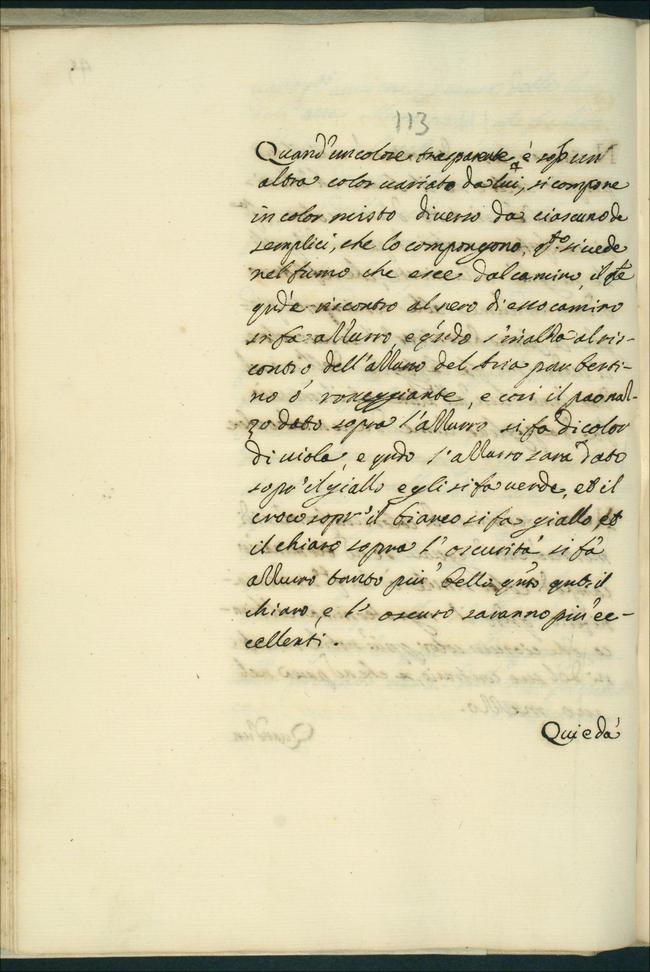 113
Quand'un colore trasparente è sopr un
altro color variato da lui, si compone
in color misto diverso da ciascuno de
semplici, che lo compongono, qto. si vede
nel fumo che esce dal camino, il qle
qnd'è riscontro al nero di esso camino
si fa azzurro, e qndo s'inalza al ris-
contro dell'azzuro del aria pare beret-
ino ò rosseggiante, e così il paonaz-
zo dato sopra l'azzurro si fa di color
di viola, e qndo l'azzurro sarà dato
sopr'il giallo egli si fa verde, et il
croco sopr'il bianco si fa giallo et
il chiaro sopra l'oscurità si fà
azzurro tanto più bello qnto
chiaro, e l'oscuro saranno più ec-
cellenti.
Qui e da